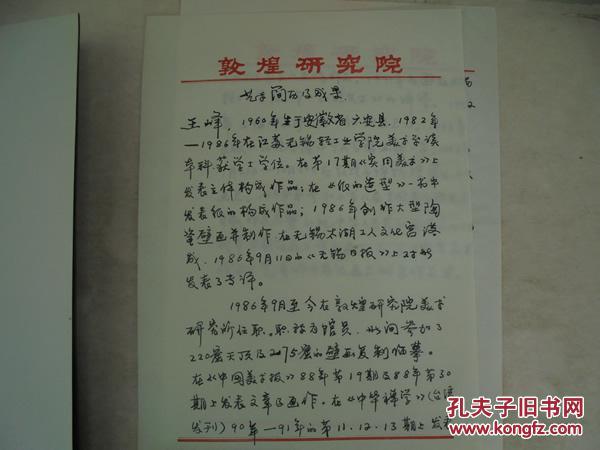 敦煌研究院
艺术简历及成果
王峰，1960年生于安徽省六安县，1982年
—1986年在江苏无锡轻工业学院美术学读
本科获学士学位。在第17期《实用美术》上
发表立体构成作品；在《纸的造型》一书中
发表纸的构成作品；1986年创作大型陶
瓷壁画并制作，在无锡太湖工人文化宫落
成，1986年9月11日的《无锡日报》上对此
发表了专评。
1986年9月至今在敦煌研究院美术
研究所任职。职称为馆员，此间参加了
220窟天顶及275窟的壁画复制临摹。
在《中国美术报》88年第19期及88年第30
期上发表文章及画作。在《中华禅学》（台湾
发刊）90年—91年的第11.12.13期上发表
孔夫子旧书网
KONGFZ.COM